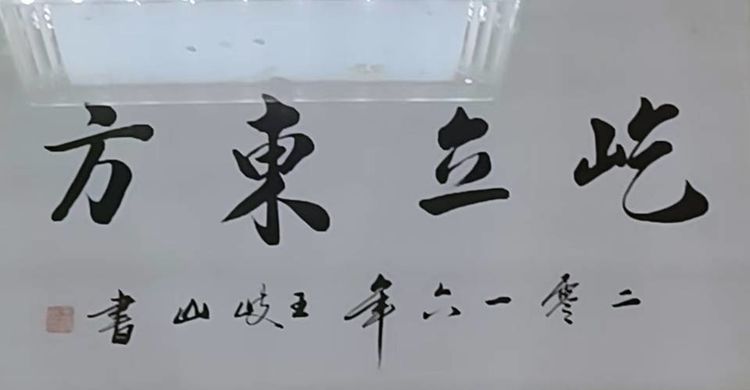 屹立東方
二零一六年王歧山書